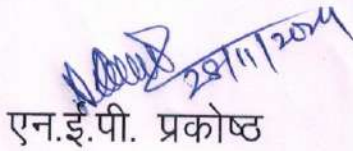 28/11/2024
एन.ई.पी. प्रकोष्ठ